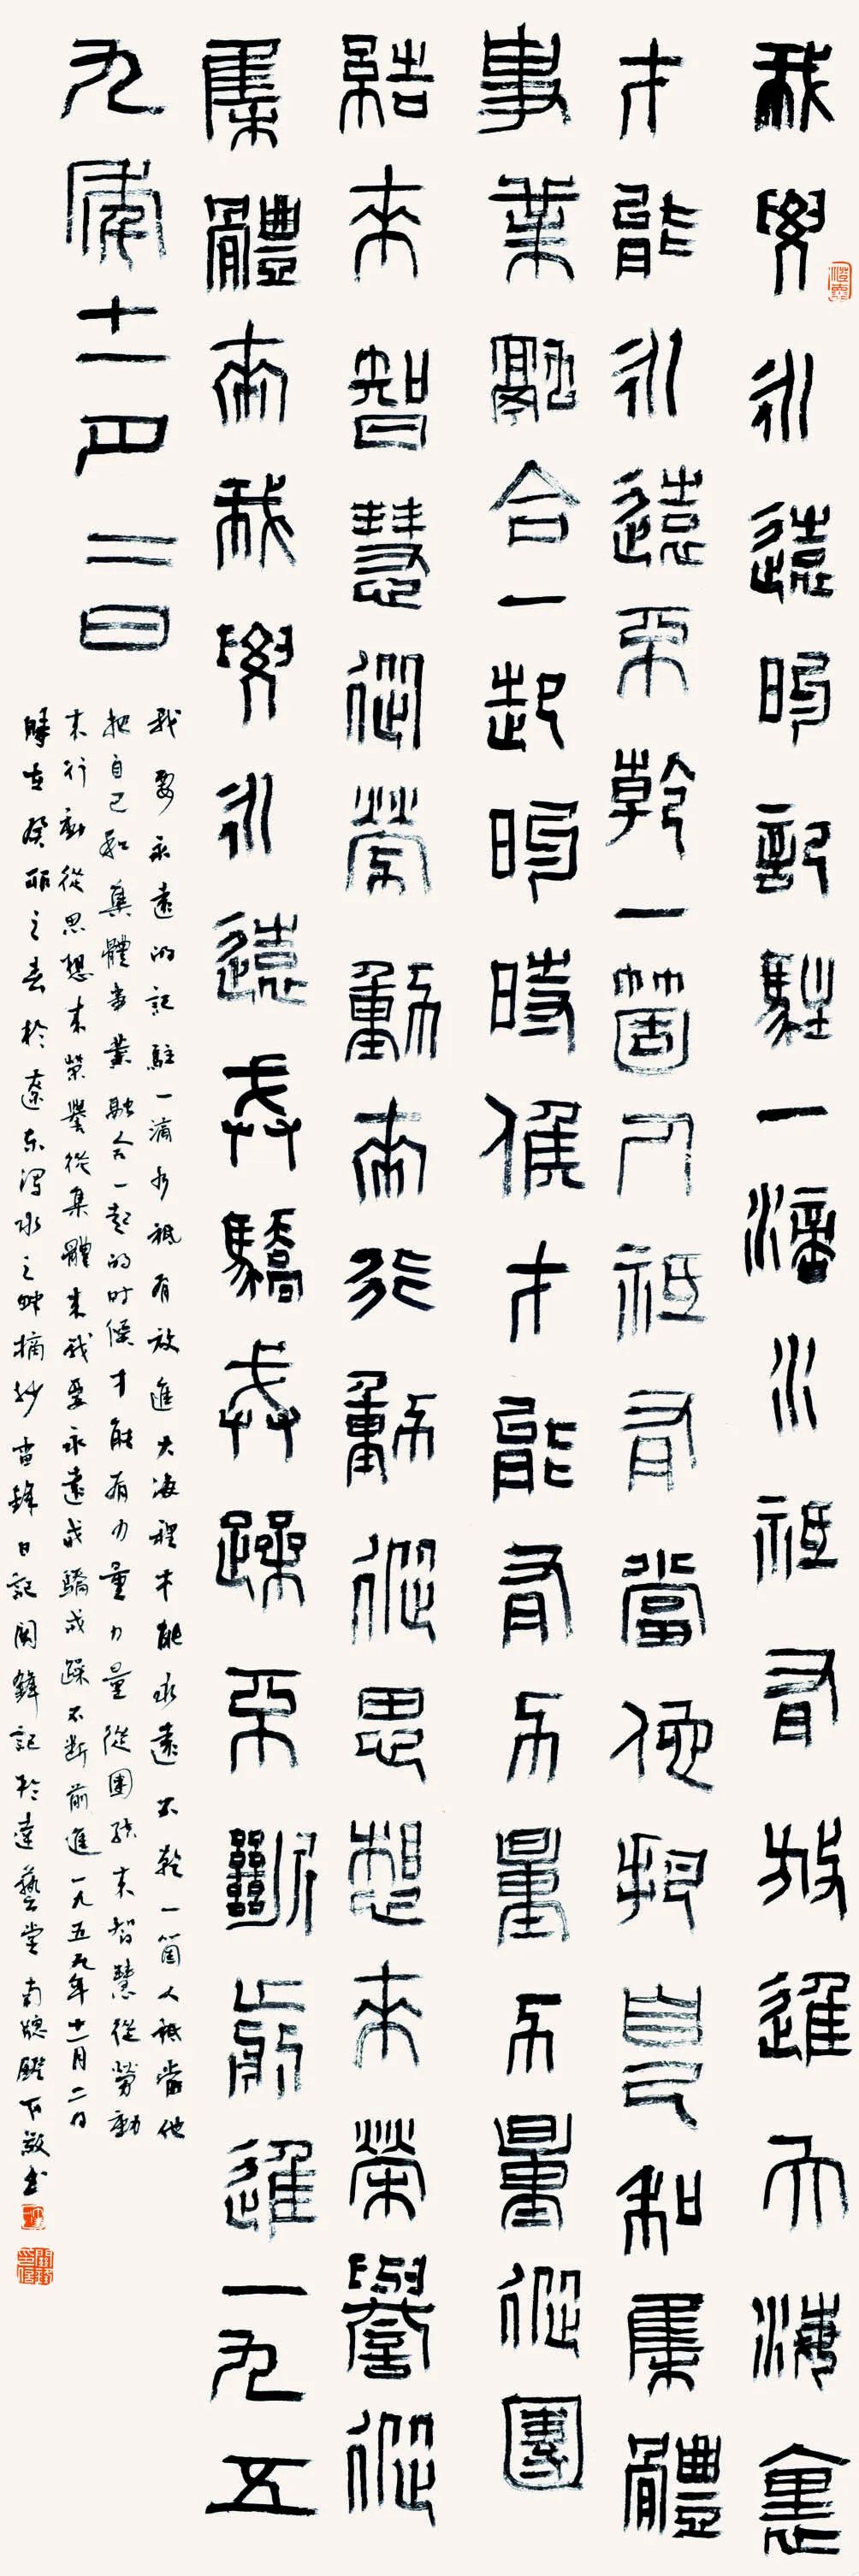 我要永遠的記駐一滴水祗有放進大海裏
才能永遠不乾一箇人祗有當他把自己和集體
事業融合一起的時候才能有力量力量從團
結來智慧從勞動來行動從思想來榮譽從
集體來我要永遠戒驕戒躁不斷前進一九五
九年十一月二日
我要永遠的記駐一滴水祗有放進大海裡才能永遠不乾一箇人祗當他
把自己和集體事業融合一起的时候才能有力量力量從團結来智慧從勞動
来行動從思想来榮譽從集體来我要永遠戒驕戒躁不断前進一九五九年十一月二日
歲在癸卯之春於遼东水之畔摘抄雷鋒日記闞鋒記於達藝堂南牕燈下敬书